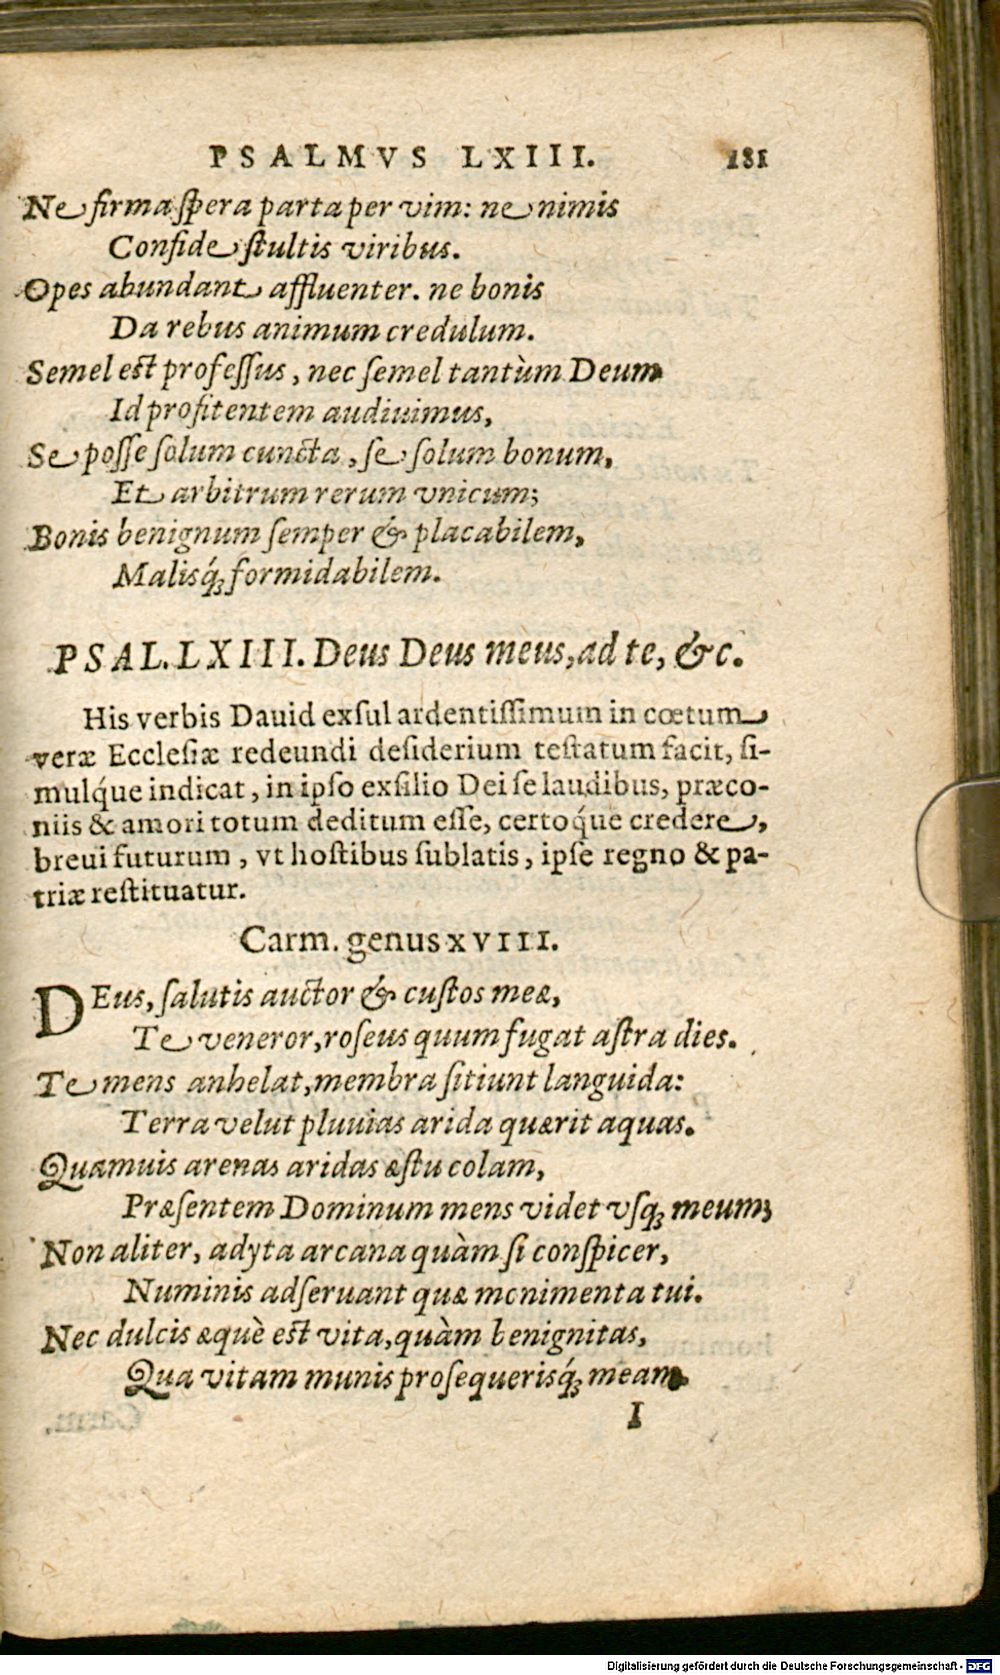 PSALMVS LXIII. 181
Ne firma spera parta per vim: ne nimis
Confide stultis viribus.
Opes abundant affluenter. ne bonis
Da rebus animum credulum.
Semel est professus, nec semel tantùm Deum
Id profitentem audiuimus,
Se posse solum cuncta, se solum bonum,
Et arbitrum rerum vnicum;
Bonis benignum semper & placabilem,
Malisq́; formidabilem.
PSAL. LXIII. Deus Deus meus, ad te, &c.
His verbis Dauid exsul ardentissimum in cœtum
veræ Ecclesiæ redeundi desiderium testatum facit, si-
mulq́ue indicat, in ipso exsilio Dei se laudibus, præco-
niis & amori totum deditum esse, certoq́ue credere,
breui futurum, vt hostibus sublatis, ipse regno & pa-
triæ restituatur.
Carm. genus XVIII.
DEus, salutis auctor & custos meæ,
Te veneror, roseus quum fugat astra dies.
Te mens anhelat, membra sitiunt languida:
Terra velut pluuias arida quærit aquas.
Quamuis arenas aridas æstu colam,
Præsentem Dominum mens videt vsq; meum;
Non aliter, adyta arcana quàm si conspicer,
Numinis adseruant quæ monimenta tui.
Nec dulcis æquè est vita, quàm benignitas,
Qua vitam munis prosequerisq́; meam
I
Digitalisierung gefördert durch die Deutsche Forschungsgemeinschaft - DFG